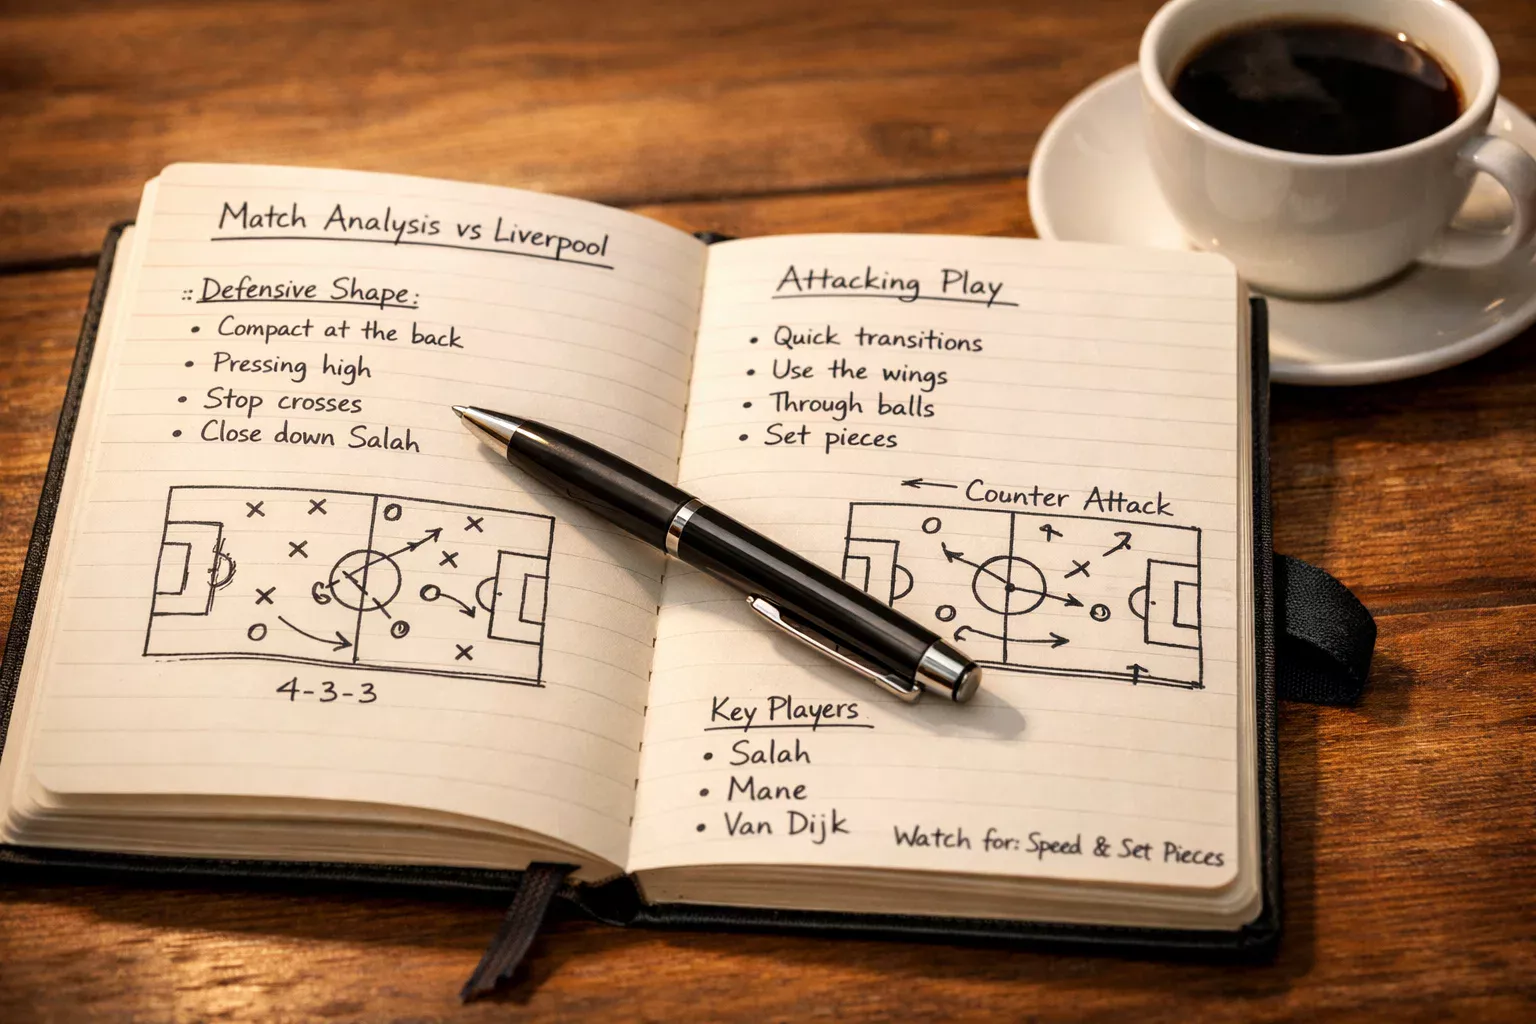 Match Analysis vs Liverpool
:: Defensive Shape:
• Compact at the back
• Pressing high
• Stop crosses
• Close down Salah
4-3-3
Attacking Play
• Quick transitions
• Use the wings
• Through balls
• Set pieces
← Counter Attack
Key Players
• Salah
• Mane
• Van Dijk
Watch for: Speed & Set Pieces